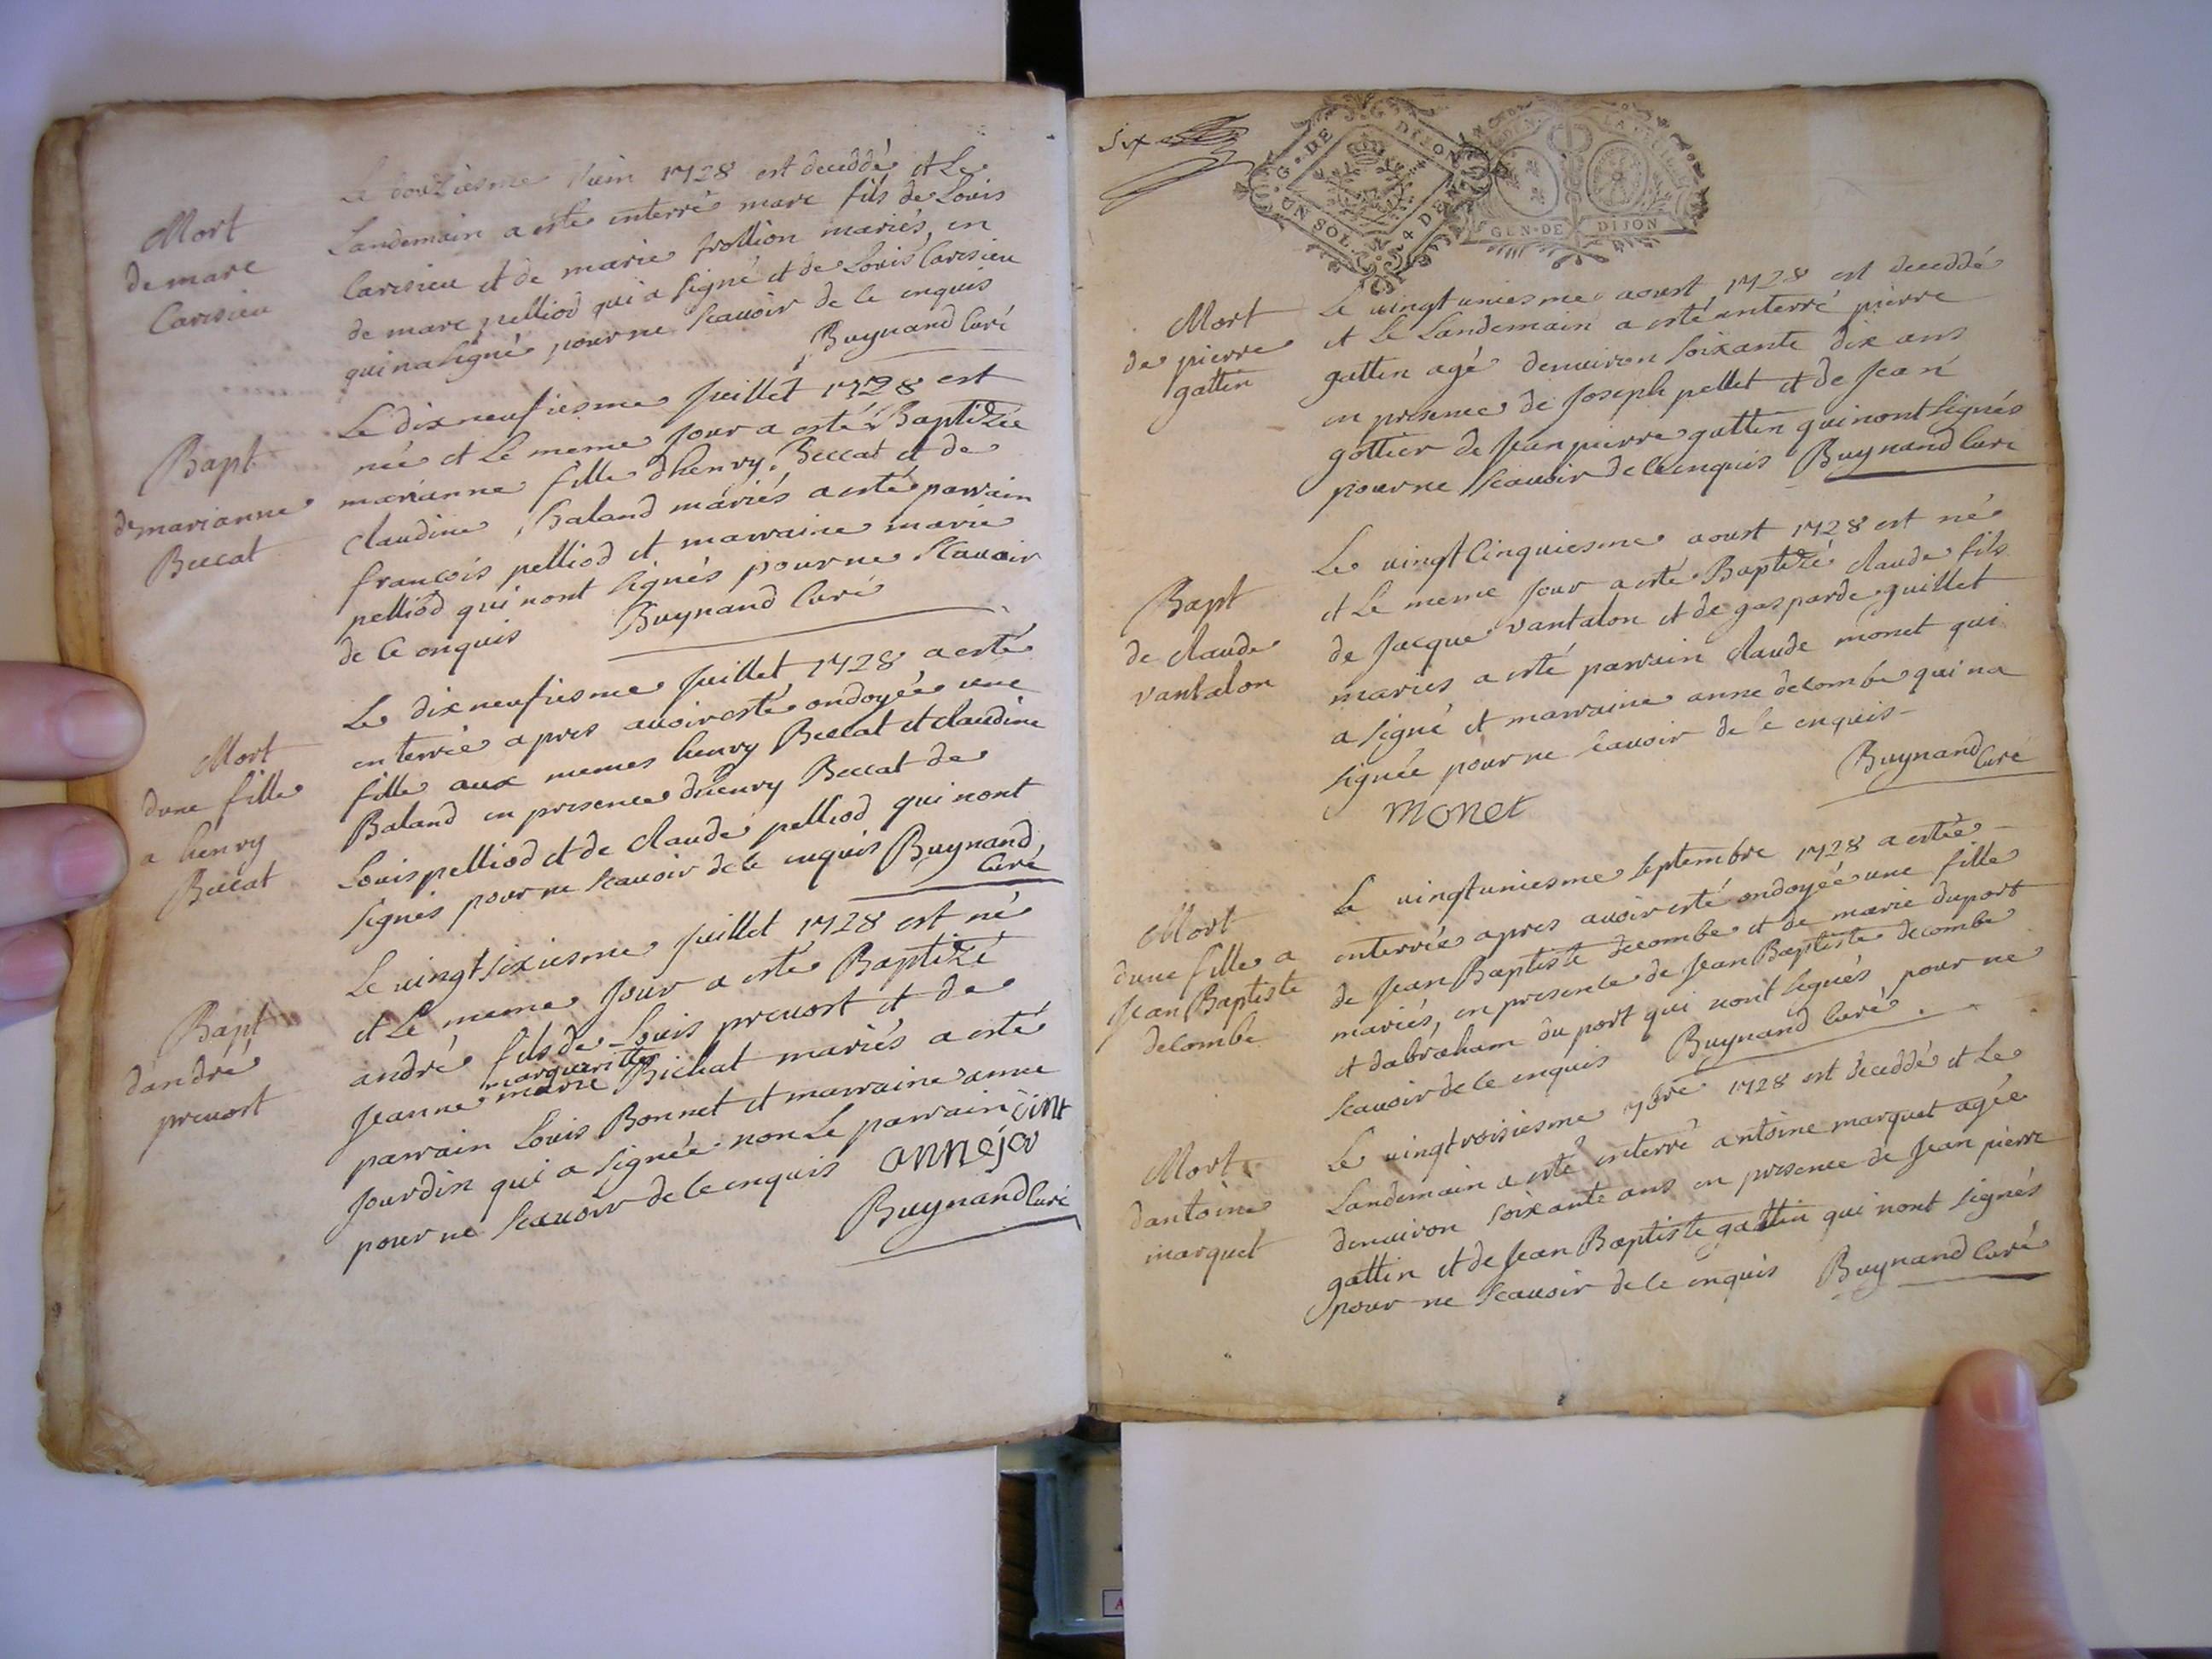 Mort
de marc
Carisieu
Le douziesme Juin 1728 est deceddé et Le
Landemain a esté enterré marc fils de Louis
Carisieu et de marie frollion mariés, en
de marc pelliod qui a signé et de Louis Carisieu
qui na signé pour ne scauoir de ce enquis
Buynand Curé
Bapt
de marianne
Beccat
Le dix neufiesme Juillet 1728 est
née et Le meme Jour a esté Baptizée
marianne fille dhenry Beccat et de
claudine Baland mariés a esté parrain
francois pelliod et marraine marie
pelliod qui nont signés pour ne scauoir
de ce enquis Buynand Curé
Mort
dune fille
a henry
Beccat
Le dix neufiesme Juillet 1728 a esté
enterrée apres auoir esté ondoyée une
fille aux memes henry Beccat et claudine
Baland en presence dhenry Beccat de
Louis pelliod et de claude pelliod qui nont
signés pour ne scauoir de ce enquis Buynand
Curé
Bapt
dandré
preuost
Le uingt sixiesme Juillet 1728 est né
et Le meme Jour a esté Baptizé
andré fils de Louis preuost et de
margueritte
Jeanne marie Bichat mariés a esté
parrain Louis Bonnet et marraine anne
Jourdin qui a signée non Le parrain
pour ne scauoir de ce enquis anne
Buynand Curé
six
G. DE DIJON
UN SOL. 4 DEN
GEN. DE DIJON
Mort
de pierre
gattin
Le uingt uniesme aoust 1728 est deceddé
et Le Landemain a esté enterré pierre
gattin agé denuiron soixante dix ans
en presence de Joseph pellet et de Jean
gottier de Jean pierre gattin qui nont signés
pour ne scauoir de ce enquis Buynand Curé
Bapt
de claude
vantalon
Le uingt cinquiesme aoust 1728 est né
et Le meme Jour a esté Baptizé claude fils
de Jacque vantalon et de gasparde guillet
mariés a esté parrain claude monet qui
a signé et marraine anne decombe qui na
signée pour ne scauoir de ce enquis
Buynand
Curé
monet
Mort
dune fille a
Jean Baptiste
decombe
Le uingt uniesme septembre 1728 a estée
enterrée apres auoir esté ondoyée une fille
de Jean Baptiste decombe et de marie duport
mariés, en presence de Jean Baptiste decombe
et dabraham du port qui nont signés pour ne
scauoir de ce enquis Buynand Curé
Mort
dantoine
marquet
Le uingt troisiesme 7bre 1728 est deceddé et Le
Landemain a esté enterré antoine marquet agée
denuiron soixante ans en presence de Jean pierre
gattin et de Jean Baptiste gattin qui nont signés
pour ne scauoir de ce enquis Buynand Curé